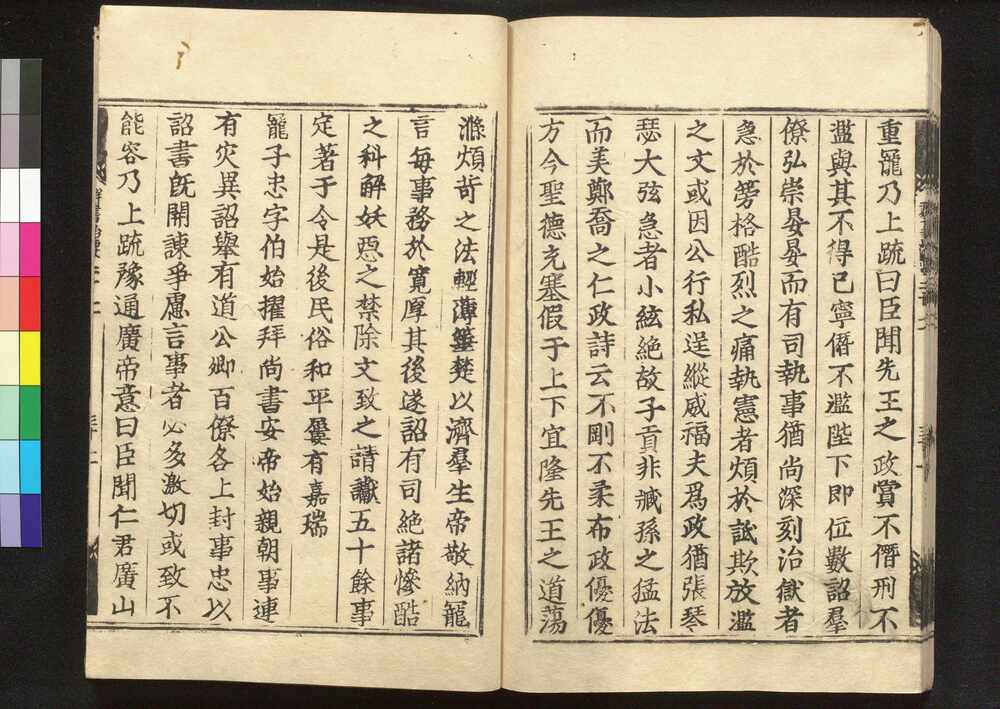 重寵乃上疏曰臣聞先王之政賞不僭刑不
濫與其不得已寧僭不濫陛下即位數詔羣
僚弘崇晏晏而有司執事猶尚深刻治獄者
急於篣格酷烈之痛執憲者煩於詆欺放濫
之文或因公行私逞縱威福夫爲政猶張琴
瑟大弦急者小絃絶故子貢非臧孫之猛法
而美鄭喬之仁政詩云不剛不柔布政優優
方今聖德充塞假于上下宜隆先王之道蕩
滌煩苛之法輕薄箠楚以濟羣生帝敬納寵
言每事務於寬厚其後遂詔有司絶諸慘酷
之科解妖惡之禁除文致之請讞五十餘事
定著于令是後民俗和平屢有嘉瑞
寵子忠字伯始擢拜尚書安帝始親朝事連
有灾異詔舉有道公卿百僚各上封事忠以
詔書旣開諫爭慮言事者必多激切或致不
能容乃上疏豫通廣帝意曰臣聞仁君廣山